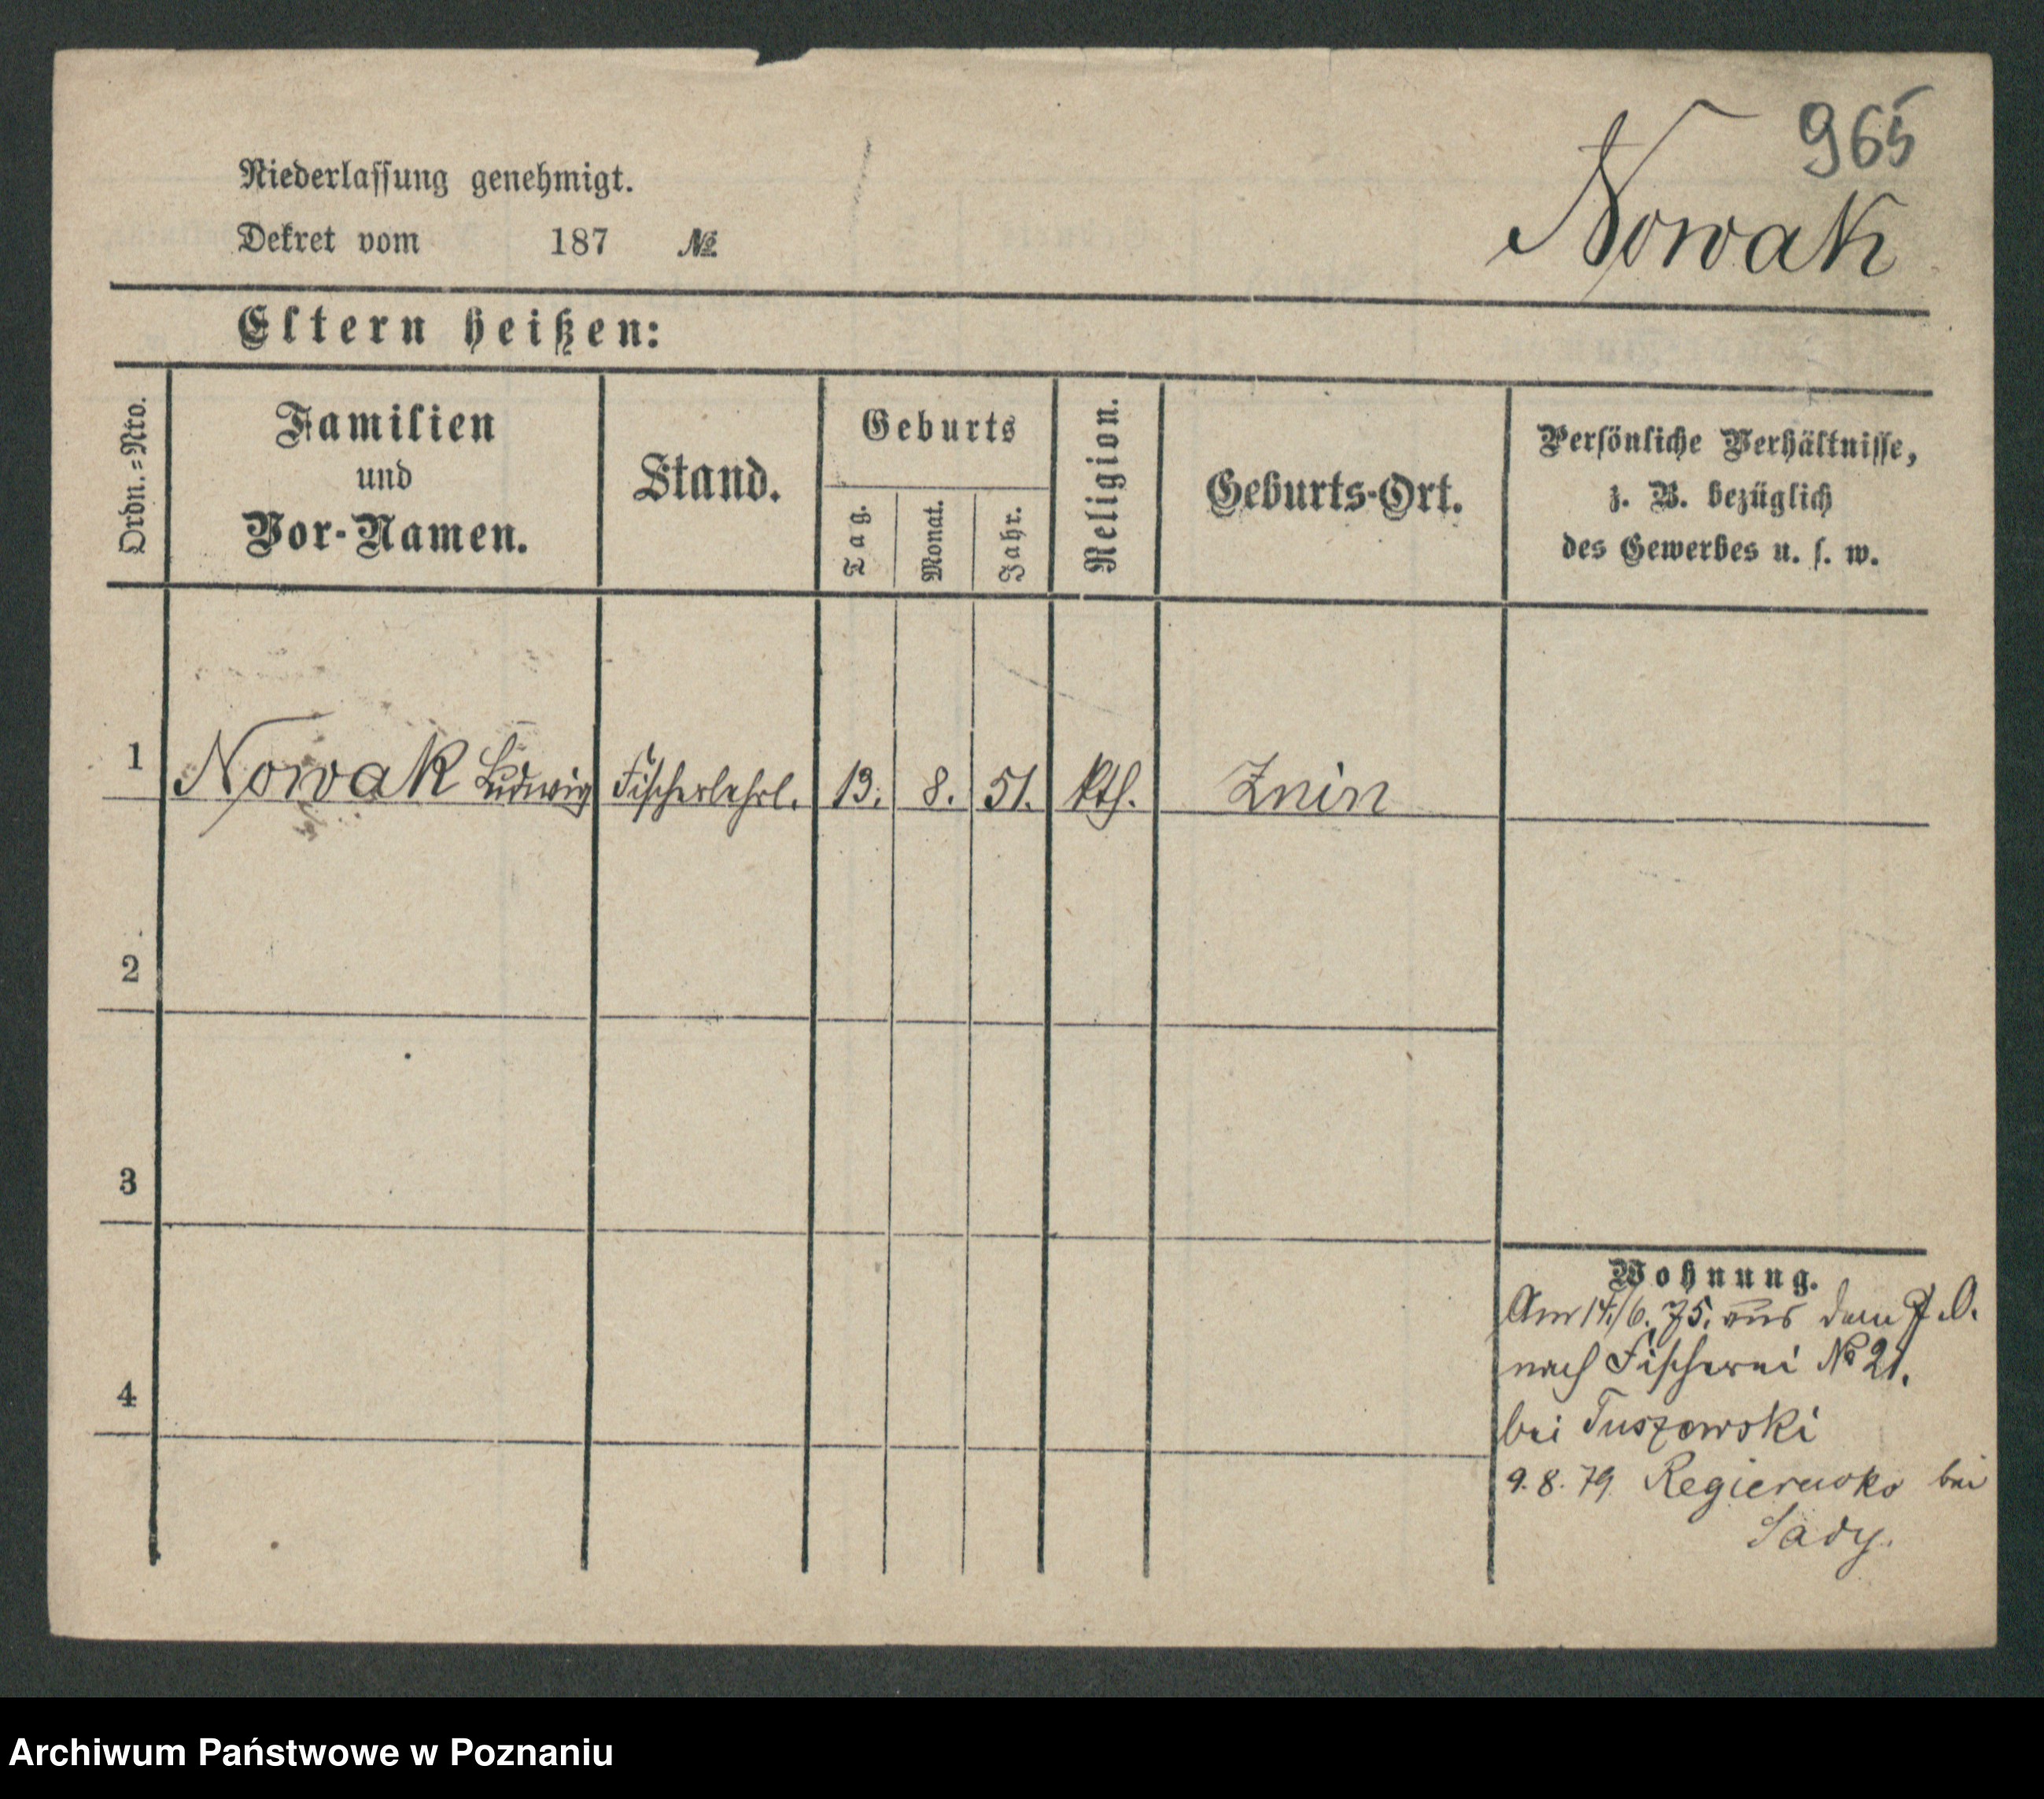 965
Nowak
Niederlassung genehmigt.
Dekret vom 187 №
Eltern heißen:
Ordn.=Nro.
Familien
und
Vor-Namen.
Stand.
Geburts
Tag.
Monat.
Jahr.
Religion.
Geburts-Ort.
Persönliche Verhältnisse,
z. B. bezüglich
des Gewerbes u. s. w.
1 Nowak Ludwig Fischerlehrl. 13. 8. 51. kth. Znin
2
3
4
Wohnung.
Am 14./6. 75. aus dem
nach Fischerei № 21.
bei Tuszewski
9. 8. 79. bei
Sady.
Archiwum Państwowe w Poznaniu